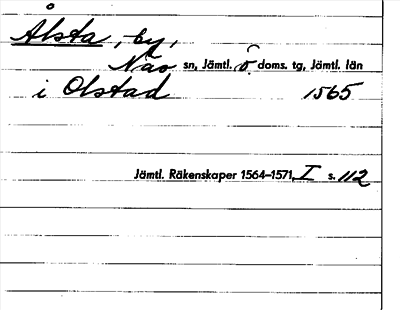 Ålsta, by,
Näs sn, Jämtl. ö. doms. tg, Jämtl. län
i Olstad 1565
Jämtl. Räkenskaper 1564–1571, I s. 112